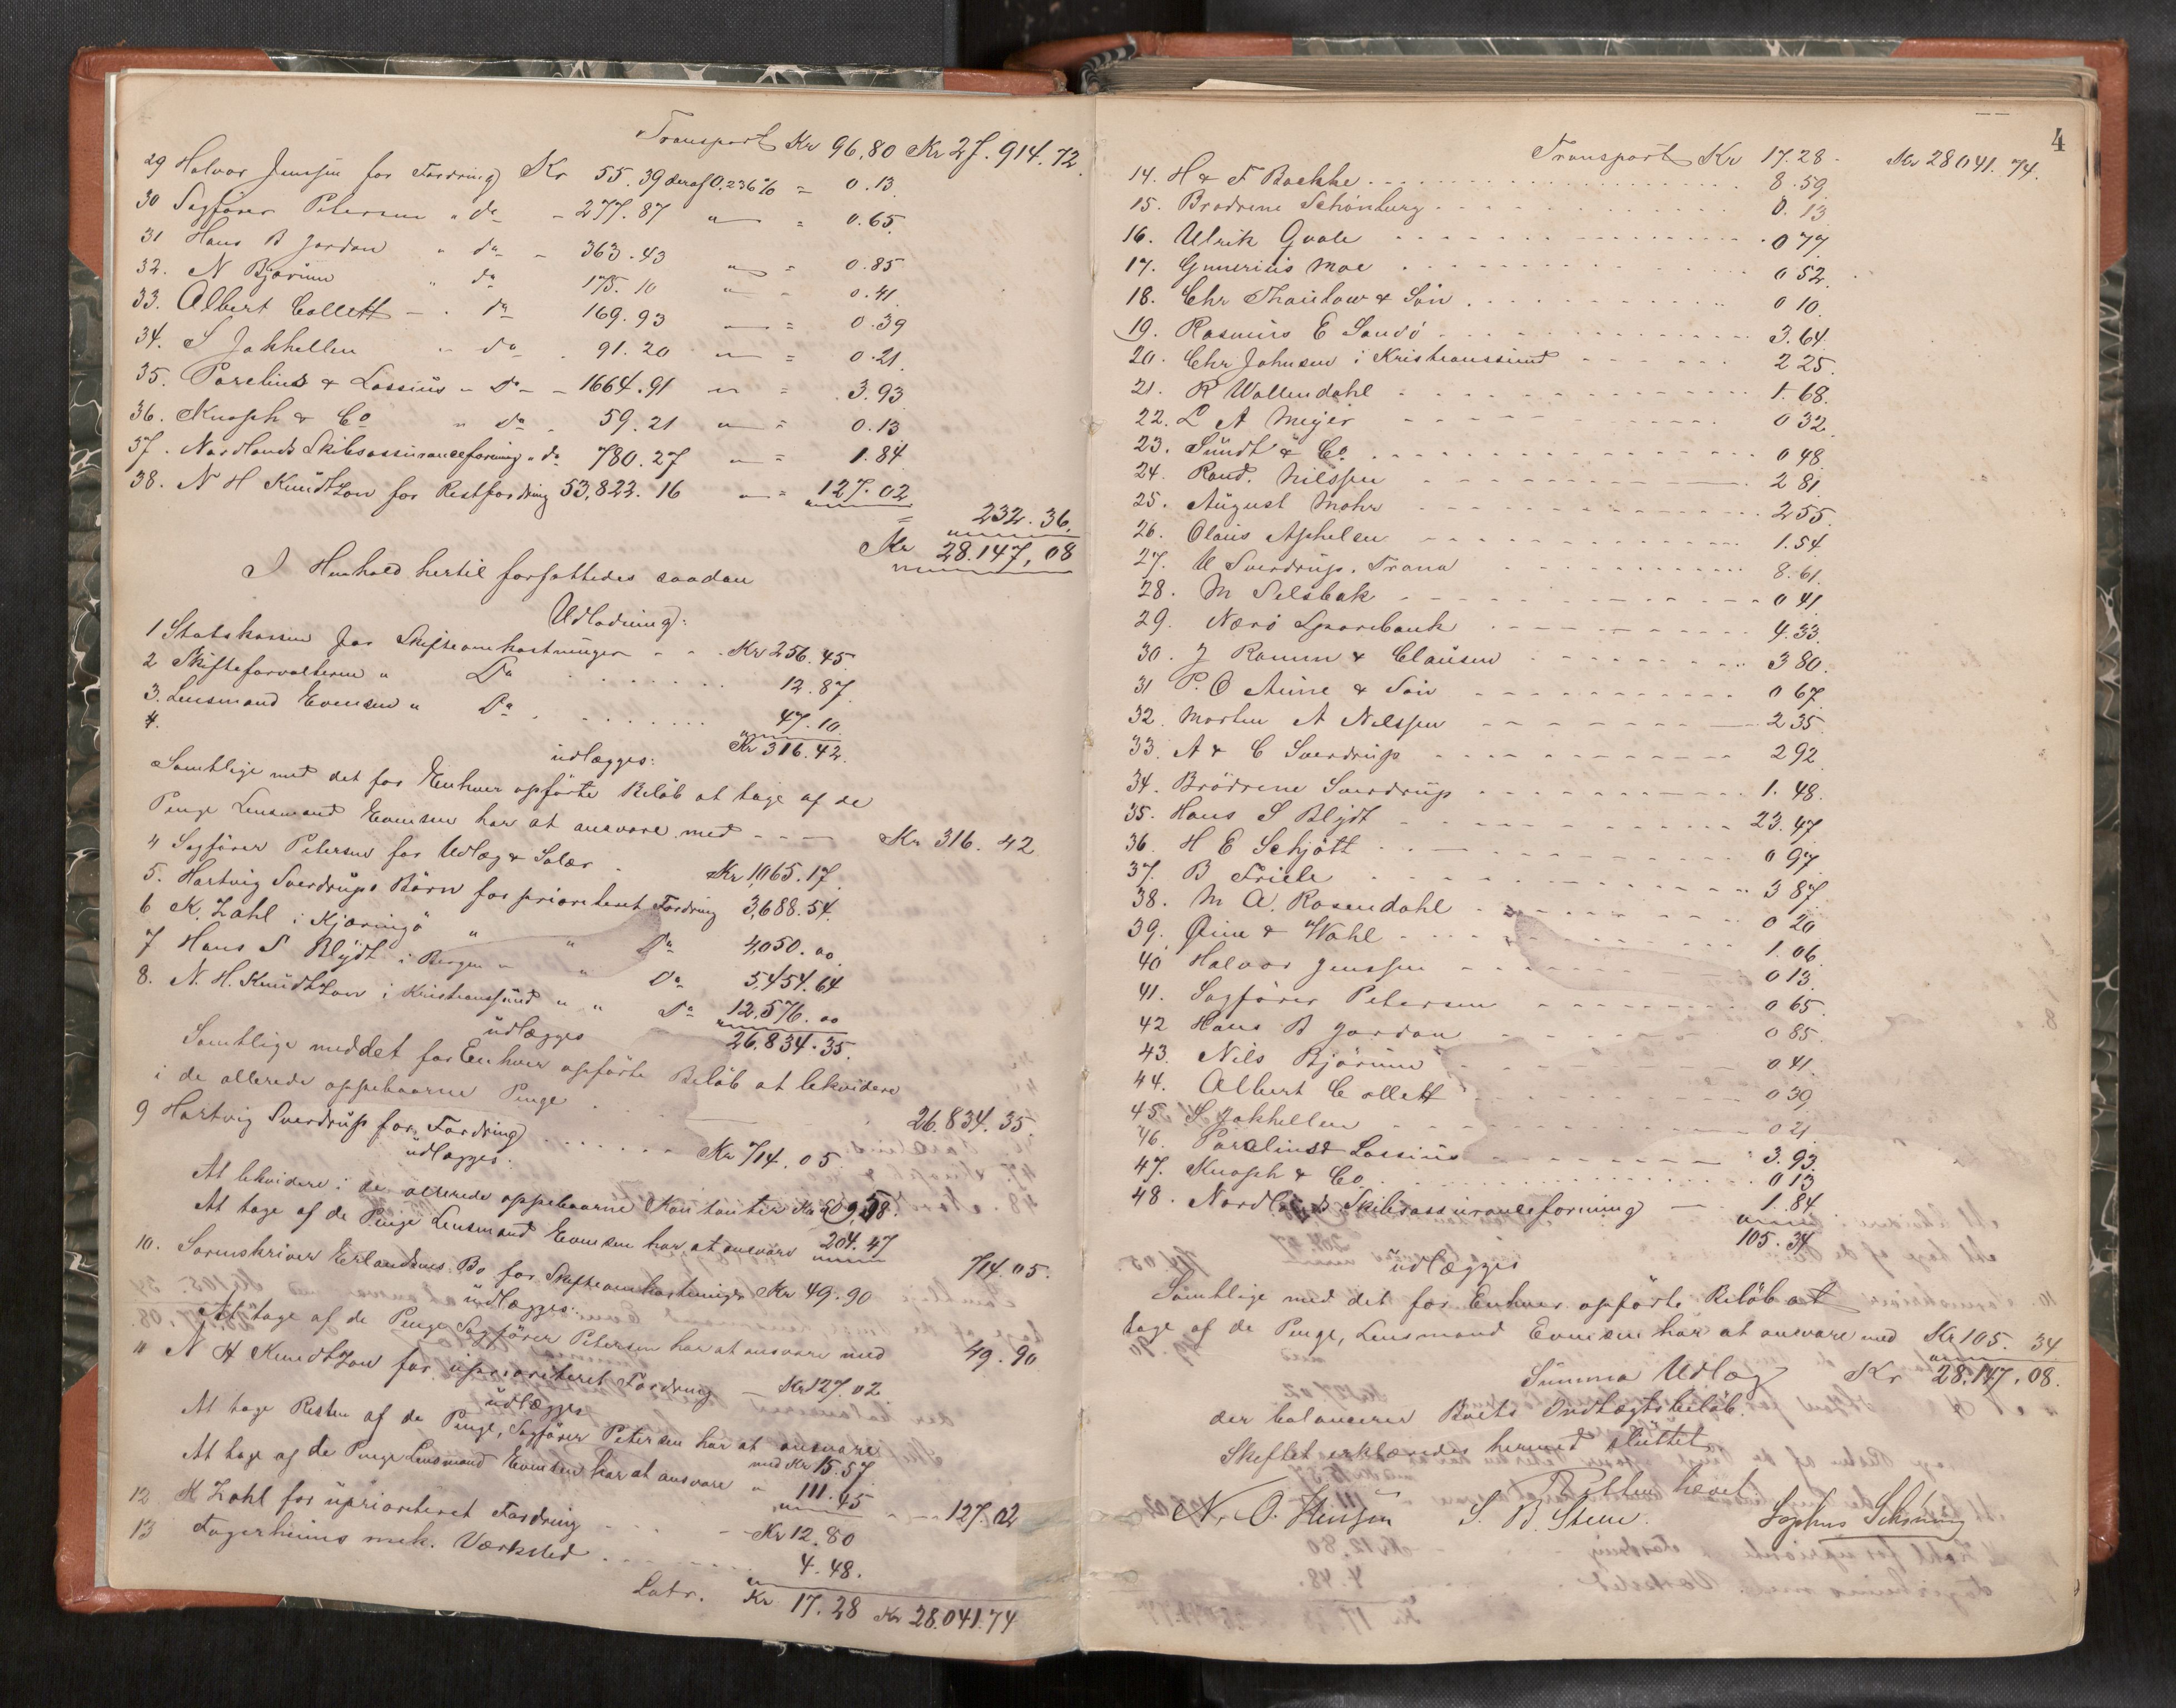 Transport Kr 96.80 Kr 27.914.72.
29 Halvor Jenssen for Fordring Kr 55.39 deraf 0,236% = 0.13
30 Sagfører Petersen " do - 277.87 " = 0.65.
31 Hans B Jordan " do - 363.43 " = 0.85
32. N Bjørum " do 175.10 " - 0.41.
33. Albert Collett - . do 169.93 — = 0.39
34. S Jakhellen " do . 91.20 " = 0.21.
35. Parelius & Lossius " do - 1664.91 " = 3.93
36. Knoph & Co " do . 59.21 " = 0.13
37. Nordlands Skibsassuranceforening " do 780.27 " = 1.84
38. N H Knudtzon for Restfordring 53,822.16 " = 127.02
= 232.36.
Kr 28.147,08
I Henhold hertil forfattedes saadan
Udlodning:
1 Statskassen for Skifteomkostninger - - . Kr 256.45.
2 Skifteforvalteren " Do . . . . . . . 12.87.
3. Lensmand Evensen " Do . . . . . . . . 47.10.
4.
Kr 316.42.
udlægges:
Samtlige med det for Enhver opførte Beløb at tage af de
Penge Lensmand Evensen har at ansvare med - - - Kr 316.42
4 Sagfører Petersen for Udlæg & Salær . Kr 1,065.17.
5. Hartvig Sverdrups Børn for prioriteret Fordring 3,688.54.
6 K. Zahl i Kjøringø " " Do 4,050.00.
7 Hans S Blydt i Bergen " " Do 5,454.64
8. N. H. Knudtzon i Kristianssund " " Do 12,576.00
26.834.35.
udlægges
Samtlige med det for Enhver opførte Beløb at likvidere
i de allerede oppebaarne Penge . . . 26.834.35.
9 Hartvig Sverdrup for Fordring . . . . . . Kr 714.05.
udlægges:
At likvidere i de allerede oppebaarne Kontanter Kr 509,58.
At tage af de Penge Lensmand Evensen har at ansvare 204.47
714.05.
10. Sorenskriver Erlandsens Bo for Skifteomkostninger Kr 49.90
udlægges:
At tage af de Penge Sagfører Petersen har at ansvare med 49.90
11 N H Knudtzon for uprioriteret Fordring — Kr 127.02.
udlægges
At tage Resten af de Penge, Sagfører Petersen har at ansvare
med Kr 15.57.
At tage af de Penge Lensmand Evensen har at ansvare " 111.45
- - 127.02
12 K Zahl for uprioriteret Fordring - - - - Kr 12.80
13 Fagerheims mek. Værksted . . . . . . . 4.48.
Latr. Kr 17.28 Kr 28.041.74
4
Transport Kr 17.28 - Kr 28041.74.
14. H & F Backke . . . . . . 8.59.
15. Brødrene Schønberg . . . . . . 0.13
16. Ulrik Qvale - - - - - - 0 77.
17. Gunerius Moe . . . . . . 0 52.
18. Chr Thaulow & Søn . . . . . . 0 10.
19. Rasmus E Sandø . . . . . . 3.64.
20. Chr Johnsen i Kristianssund - - - - 2 25.
21. R Wollendahl - - - - - - 1.68.
22. L A Meyer - - - - - - 0 32.
23. Sundt & Co. . . . . . . 0 48.
24. Rand. Nilssen - - - - - - 2 81.
25. August Mohr - - - - - - 2 55.
26. Olaus Aphelen - - - - - - 1.54.
27. U Sverdrup, Trana - - - - - - 8.61.
28. M Selsbak - - - - - - 0 41.
29. Nærø Sparebank - - - - - - 4.33.
30. J Ramm & Clausen - - - - - - 3 80.
31 P. O Aune & Søn - - - - - - 0 67.
32. Morten A Nilssen - - - - - - 2 35.
33. A & C Sverdrup - - - - - - 2 92.
34. Brødrene Sverdrup - - - - - - 1.48.
35. Hans S Blydt - - - - - - 23.47
36. H E Schjøtt - - - - - - 0 97.
37. B Friele . . . . . . 3 87.
38. M A. Rosendahl . . . . . . 0 20
39. Quine & Wahl . . . . . . 1.06.
40 Halvor Jenssen - - - - - - 0 13.
41. Sagfører Petersen - - - - - - 0 65.
42 Hans B Jordan - - - - - - 0 85.
43. Nils Bjørum - - - - - - 0 41.
44. Albert Collett - - - - - - 0 39.
45. S Jakhellen - - - - - - 0 21.
46. Parelius & Lossius - - - - - - 3.93.
47. Knoph & Co . . . . . . 0 13
48. Nordlands Skibsassuranceforening — 1.84
105.34
udlægges
Samtlige med det for Enhver opførte Beløb at
tage af de Penge, Lensmand Evensen har at ansvare med Kr 105.34
Summa Udlæg Kr 28.147.08.
der balancerer Boets Indtægtsbeløb.
Skiftet erklæredes hermed sluttet
Retten hævet
N. O. Hensjen S. B. Steen. Sophus Schøning